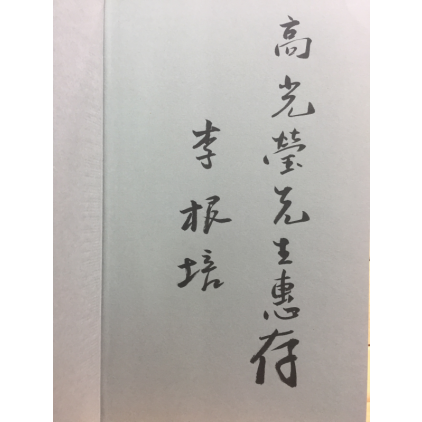 高光莹先生惠存
李根培